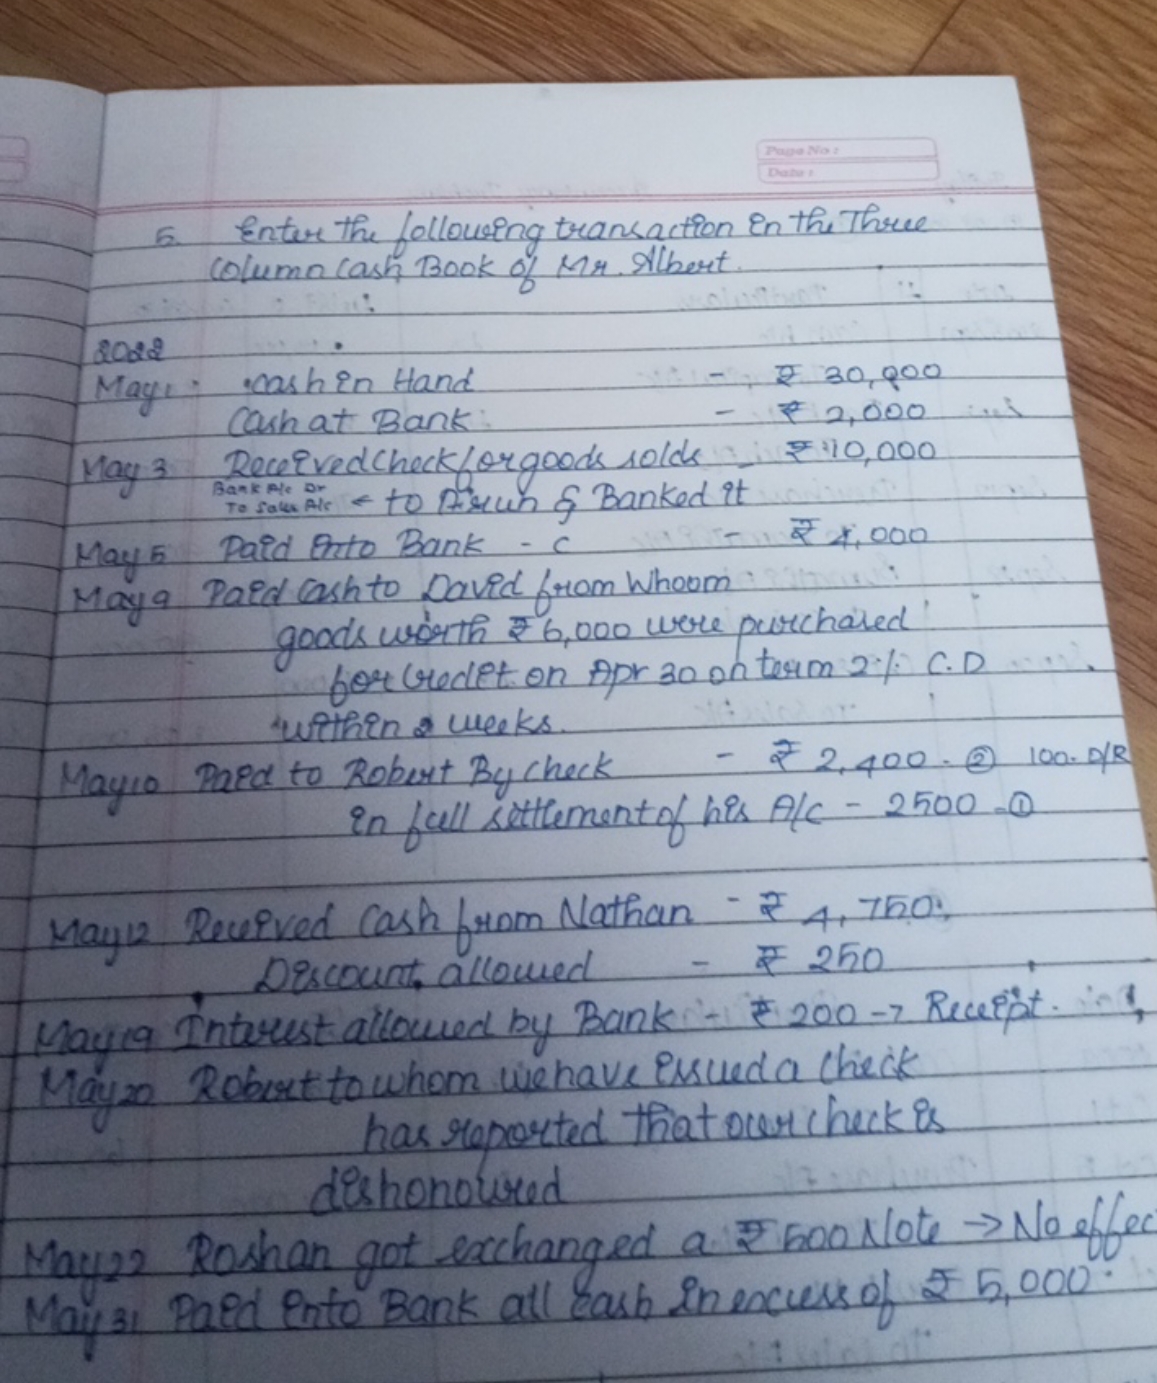 Page No :
Date :
5. Enter the following transaction in the Three
column cash Book of Mr. Albert.
2022
May 1 : cash in Hand - ₹ 30,000
Cash at Bank - ₹ 2,000
May 3 Received check for goods solds - ₹ 10,000
Bank A/c Dr
To Sales A/c ← to Arun & Banked it
May 5 Paid into Bank - C - ₹ 4,000
May 9 Paid cash to David from Whoom
goods worth ₹ 6,000 were purchased
for Credit on Apr 30 on term 2% C.D
within 2 weeks.
May 10 Paid to Robert By check - ₹ 2,400. ② 100. D/R
in full settlement of his A/C - 2500 - ①
May 12 Received Cash from Nathan - ₹ 4,750
Discount allowed - ₹ 250
May 19 Interest allowed by Bank - ₹ 200 → Receipt.
May 20 Robert to whom we have issued a check
has reported that our check is
dishonoured
May 22 Roshan got exchanged a ₹ 500 Note → No effec
May 31 Paid into Bank all cash in excess of ₹ 5,000.